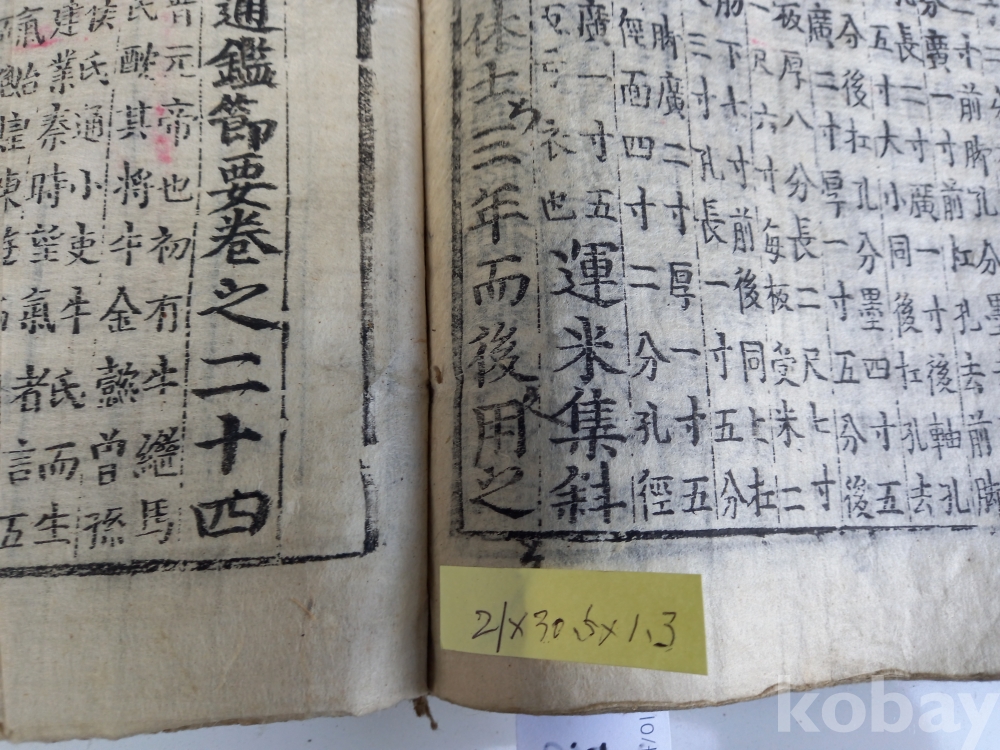 二寸前脚孔分墨
分廣一寸前杠孔去前脚
長二寸廣一寸後軸孔
五寸大小同後杠孔去
分後杠孔分墨四寸五
廣二寸厚一寸五分後
板厚八分長二尺七寸
尺六寸每板受米二
下七寸前後同上杠
三寸孔長一寸五分
脚廣二寸厚一寸五
徑面四寸二分孔徑
廣一寸五運米集斜
衣也
休士三年而後用之
通鑑節要卷之二十四
昔元帝也初有牛繼馬
氏酖其將牛金懿曾孫
侯氏通小吏牛氏而生
建業秦時望氣者言五
21×30.5×1.3
kobay